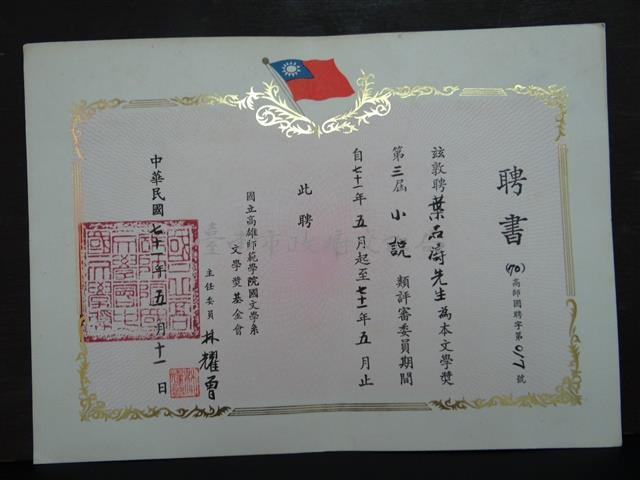 聘書
(70)高師國聘字第017號
茲敦聘葉石濤先生為本文學獎
第三屆小説類評審委員期間
自七十一年五月起至七十一年五月止
此聘
國立高雄師範學院國文學系
文學獎基金會
主任委員 林耀曾
中華民國七十一年五月十一日